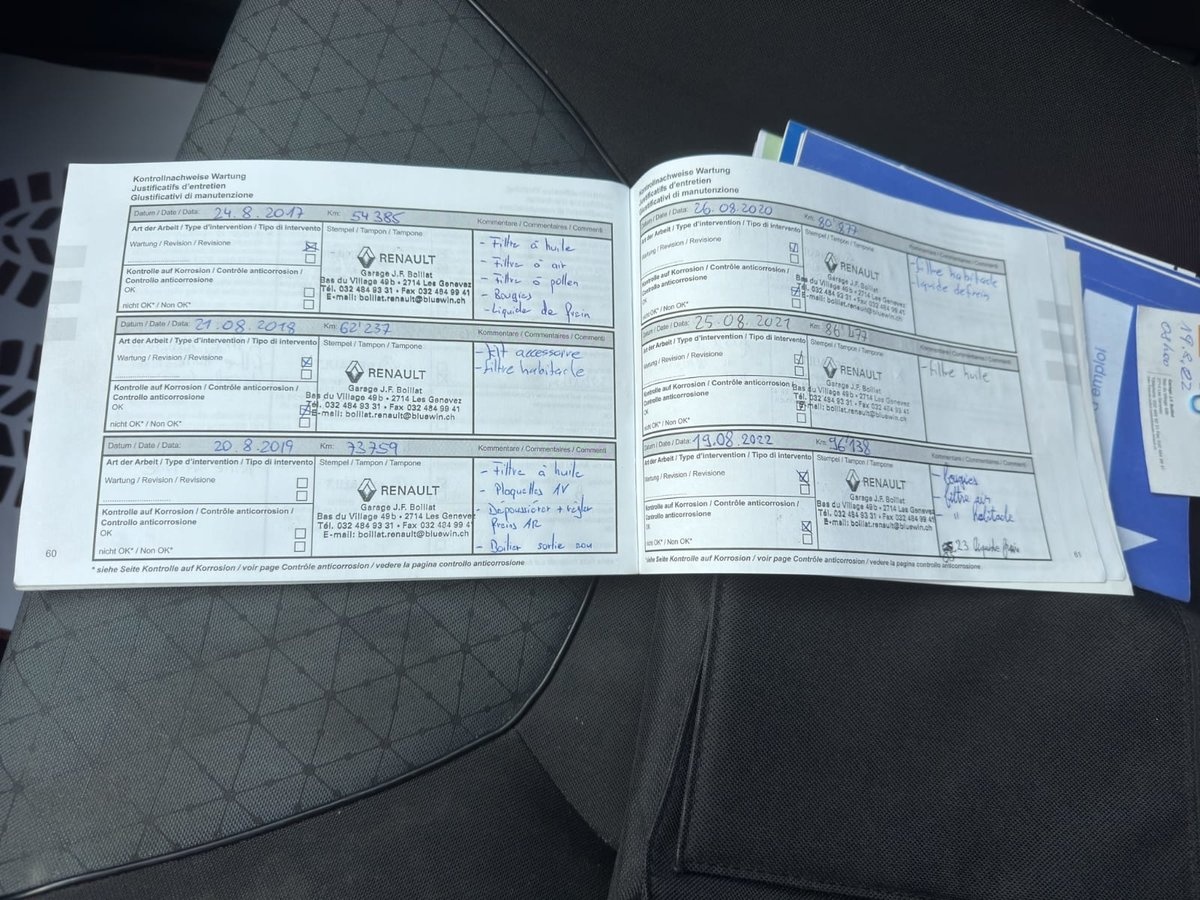 Kontrollnachweise Wartung
Justificatifs d'entretien
Giustificativi di manutenzione
Datum / Date / Data: 24.8.2017 Km: 54 385
Kommentare / Commentaires / Commenti
Art der Arbeit / Type d'intervention / Tipo di intervento
Wartung / Revision / Revisione
Kontrolle auf Korrosion / Contrôle anticorrosion /
Controllo anticorrosione
OK
nicht OK* / Non OK*
Stempel / Stamp / Tampone
RENAULT
Garage J.F. Boillat
Bas du Village 49b • 2714 Les Genevez
Tél. 032 484 93 31 • Fax 032 484 99 41
E-mail: boillat.renault@bluewin.ch
- Filtre à huile
- Filtre à air
- Filtre à pollen
- Bougies
- Liquide de frein
Datum / Date / Data: 21.08.2018 Km: 62'237
Kommentare / Commentaires / Commenti
Art der Arbeit / Type d'intervention / Tipo di intervento
Wartung / Revision / Revisione
Kontrolle auf Korrosion / Contrôle anticorrosion /
Controllo anticorrosione
OK
nicht OK* / Non OK*
Stempel / Stamp / Tampone
RENAULT
Garage J.F. Boillat
Bas du Village 49b • 2714 Les Genevez
Tél. 032 484 93 31 • Fax 032 484 99 41
E-mail: boillat.renault@bluewin.ch
- kit accessoire
- filtre habitacle
Datum / Date / Data: 20.8.2019 Km: 73759
Kommentare / Commentaires / Commenti
Art der Arbeit / Type d'intervention / Tipo di intervento
Wartung / Revision / Revisione
Kontrolle auf Korrosion / Contrôle anticorrosion /
Controllo anticorrosione
OK
nicht OK* / Non OK*
Stempel / Stamp / Tampone
RENAULT
Garage J.F. Boillat
Bas du Village 49b • 2714 Les Genevez
Tél. 032 484 93 31 • Fax 032 484 99 41
E-mail: boillat.renault@bluewin.ch
- Filtre à huile
- Plaquettes AV
- Dépoussiérer + régler
freins AR
- Boîtier sortie
60
* siehe Seite Kontrolle auf Korrosion / voir page Contrôle anticorrosion / vedere la pagina controllo anticorrosione
Kontrollnachweise Wartung
Justificatifs d'entretien
Giustificativi di manutenzione
Datum / Date / Data: 26.08.2020 Km: 80'877
Kommentare / Commentaires / Commenti
Art der Arbeit / Type d'intervention / Tipo di intervento
Wartung / Revision / Revisione
Kontrolle auf Korrosion / Contrôle anticorrosion /
Controllo anticorrosione
OK
nicht OK* / Non OK*
Stempel / Stamp / Tampone
RENAULT
Garage J.F. Boillat
Bas du Village 49b • 2714 Les Genevez
Tél. 032 484 93 31 • Fax 032 484 99 41
E-mail: boillat.renault@bluewin.ch
- filtre habitacle
- liquide de frein
Datum / Date / Data: 25.08.2021 Km: 86'477
Kommentare / Commentaires / Commenti
Art der Arbeit / Type d'intervention / Tipo di intervento
Wartung / Revision / Revisione
Kontrolle auf Korrosion / Contrôle anticorrosion
Controllo anticorrosione
OK
nicht OK* / Non OK*
Stempel / Stamp / Tampone
RENAULT
Garage J.F. Boillat
Bas du Village 49b • 2714 Les Genevez
Tél. 032 484 93 31 • Fax 032 484 99 41
E-mail: boillat.renault@bluewin.ch
- filtre huile
Datum / Date / Data: 19.08.2022 Km: 96'138
Kommentare / Commentaires / Commenti
Art der Arbeit / Type d'intervention / Tipo di intervento
Wartung / Revision / Revisione
Kontrolle auf Korrosion / Contrôle anticorrosion /
Controllo anticorrosione
OK
nicht OK* / Non OK*
Stempel / Stamp / Tampone
RENAULT
Garage J.F. Boillat
Bas du Village 49b • 2714 Les Genevez
Tél. 032 484 93 31 • Fax 032 484 99 41
E-mail: boillat.renault@bluewin.ch
- bougies
- filtre air
- " habitacle
23 liquide frein
61
*siehe Seite Kontrolle auf Korrosion / voir page Contrôle anticorrosion / vedere la pagina controllo anticorrosione